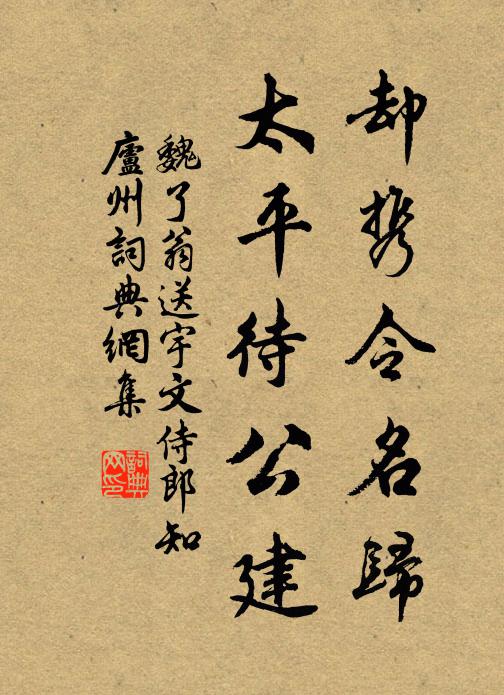 却携令名歸
太平待公建
魏了翁送宇文侍郎知
廬州詞典網集
詞典网印